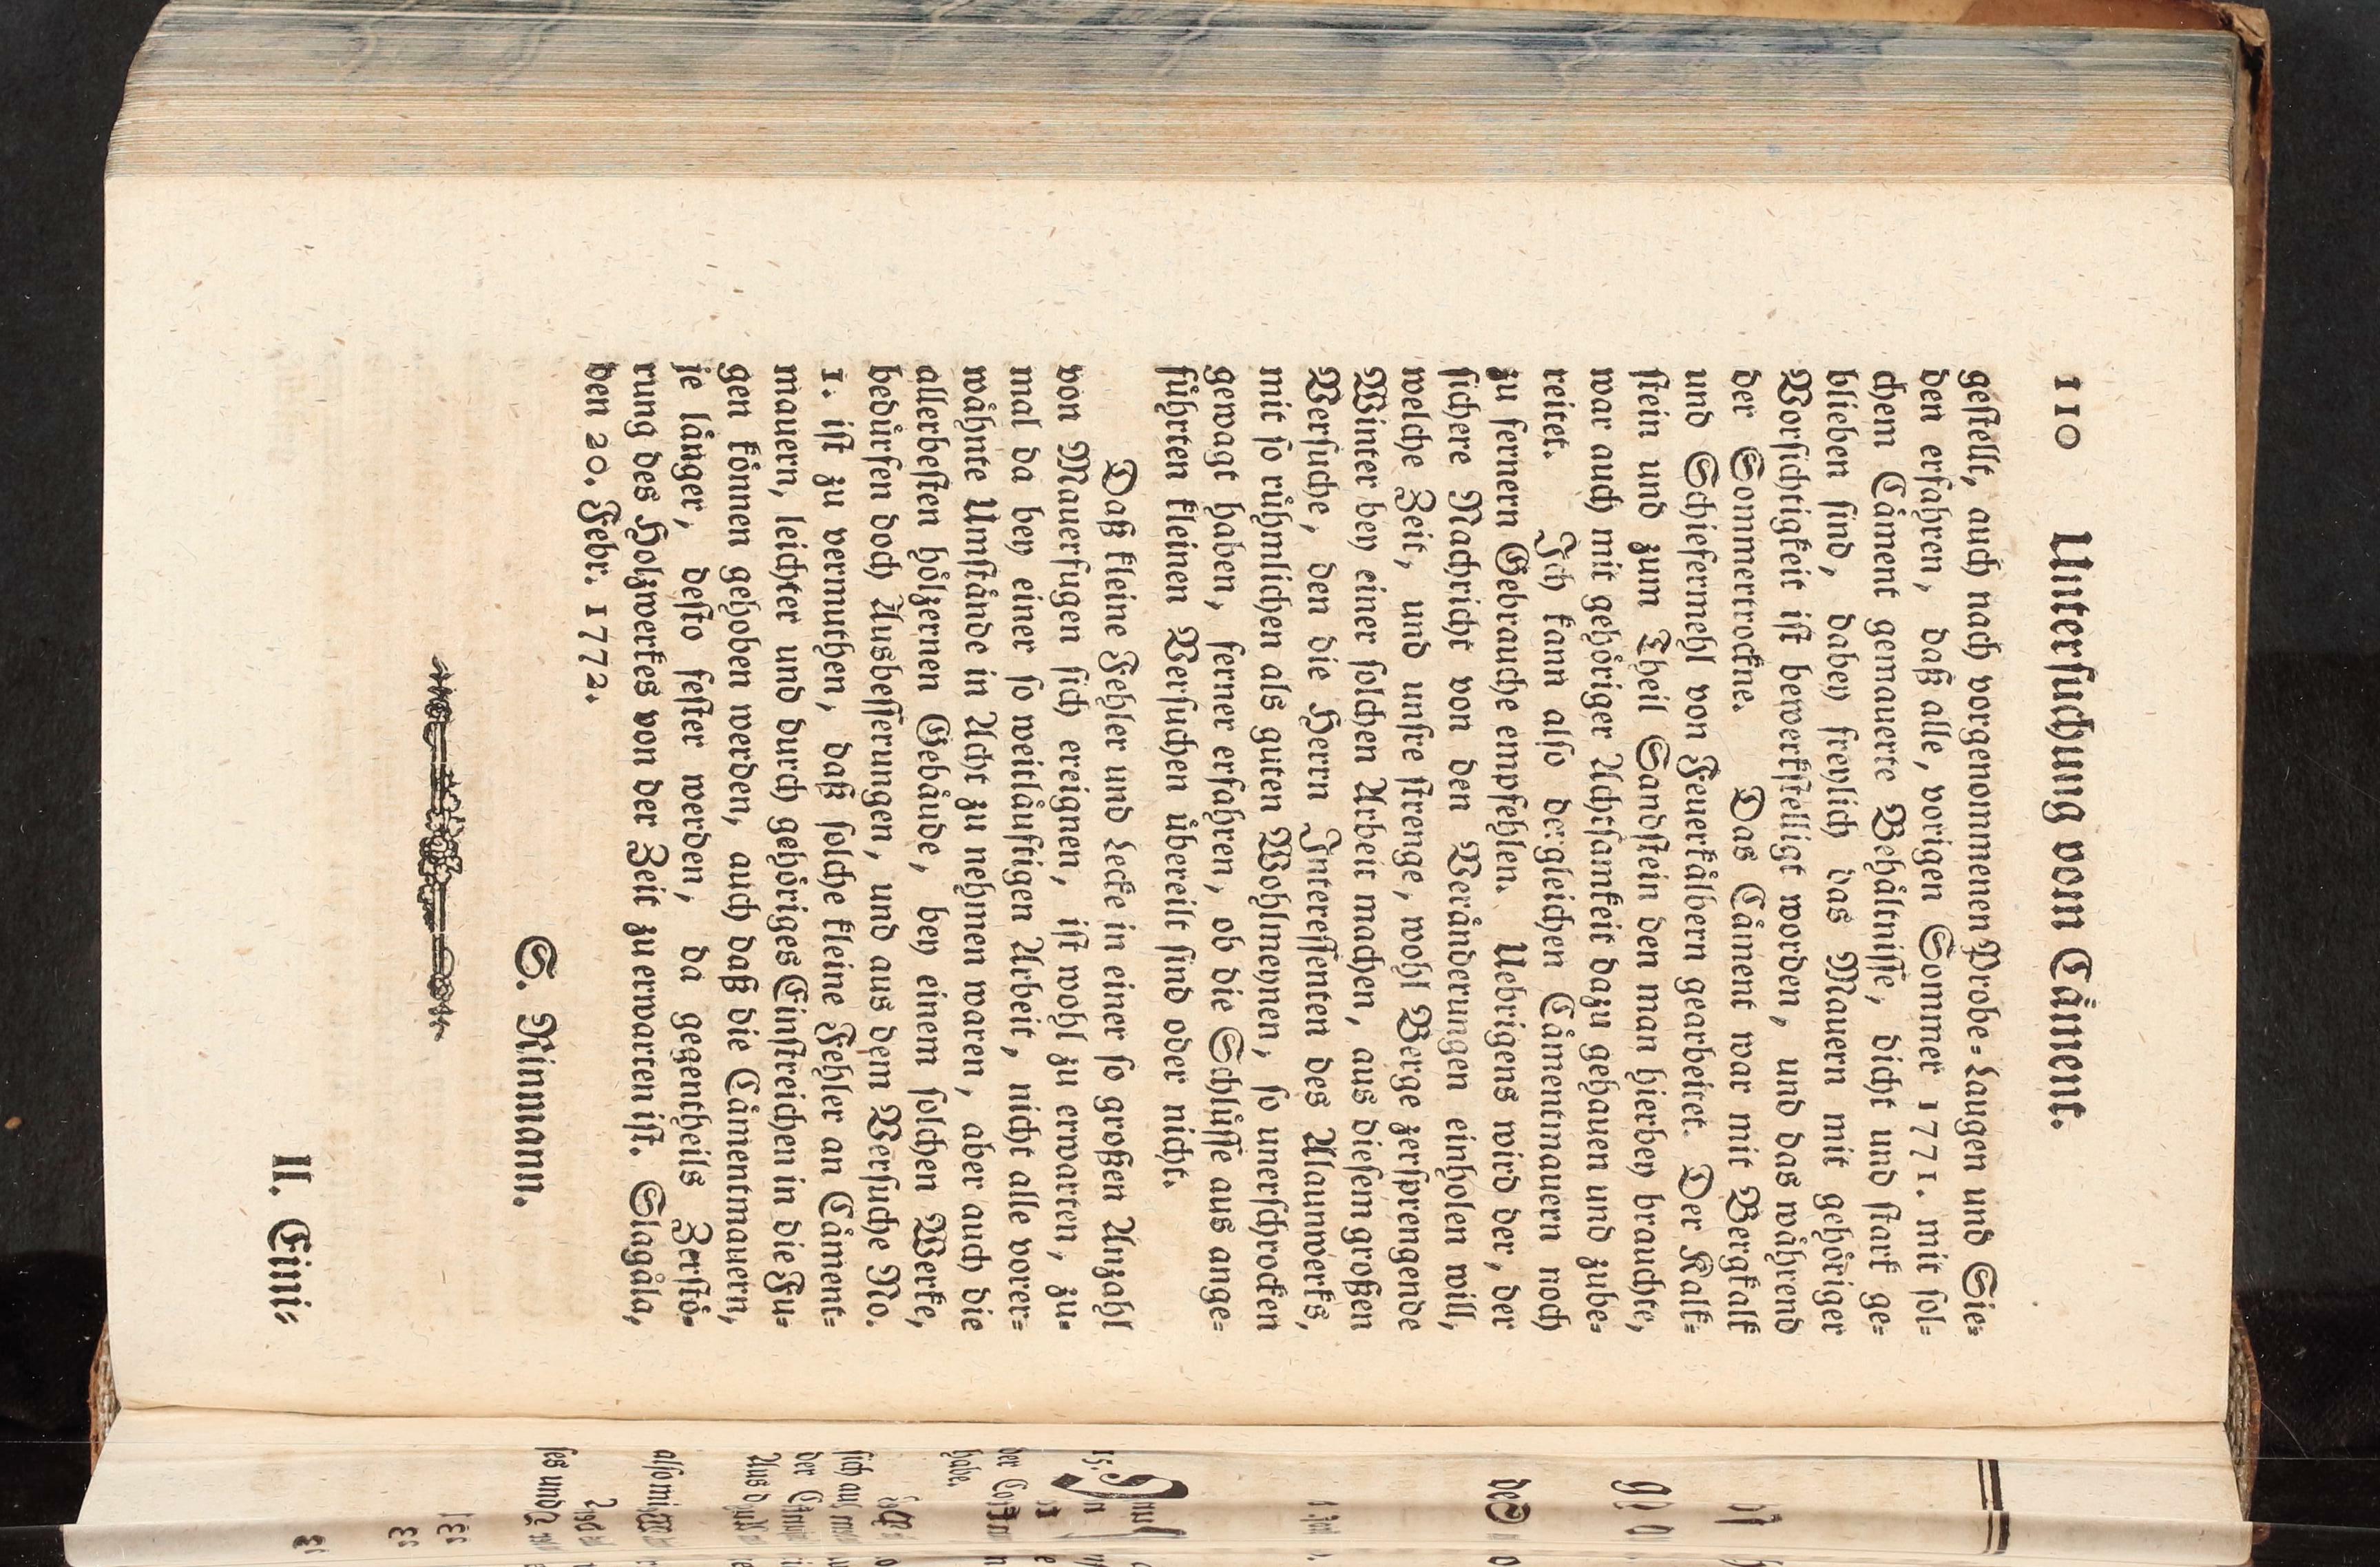 110 Unterſuchung vom Cäment.
geſtellt, auch nach vorgenommenen Probe-Laugen und Sie-
den erfahren, daß alle, vorigen Sommer 1771. mit ſol-
chem Cäment gemauerte Behältniſſe, dicht und ſtark ge-
blieben ſind, dabey freylich das Mauern mit gehöriger
Vorſichtigkeit iſt bewerkſtelligt worden, und das während
der Sommertrockne. Das Cäment war mit Bergkalk
und Schiefermehl von Feuerkälbern gearbeitet. Der Kalk-
ſtein und zum Theil Sandſtein den man hierbey brauchte,
war auch mit gehöriger Achtſamkeit dazu gehauen und zube-
reitet. Ich kann alſo dergleichen Cämentmauern noch
zu fernern Gebrauche empfehlen. Uebrigens wird der, der
ſichere Nachricht von den Veränderungen einholen will,
welche Zeit, und unſre ſtrenge, wohl Berge zerſprengende
Winter bey einer ſolchen Arbeit machen, aus dieſem großen
Verſuche, den die Herrn Intereſſenten des Alaunwerks,
mit ſo rühmlichen als guten Wohlmeynen, ſo unerſchrocken
gewagt haben, ferner erfahren, ob die Schlüſſe aus ange-
führten kleinen Verſuchen übereilt ſind oder nicht.
Daß kleine Fehler und Lecke in einer ſo großen Anzahl
von Mauerfugen ſich ereignen, iſt wohl zu erwarten, zu-
mal da bey einer ſo weitläuftigen Arbeit, nicht alle vorer-
wähnte Umſtände in Acht zu nehmen waren, aber auch die
allerbeſten hölzernen Gebäude, bey einem ſolchen Werke,
bedürfen doch Ausbeſſerungen, und aus dem Verſuche No.
1. iſt zu vermuthen, daß ſolche kleine Fehler an Cäment-
mauern, leichter und durch gehöriges Einſtreichen in die Fu-
gen können gehoben werden, auch daß die Cämentmauern,
je länger, deſto feſter werden, da gegentheils Zerſtö-
rung des Holzwerkes von der Zeit zu erwarten iſt. Slagåla,
den 20. Febr. 1772.
S. Rinmann.
II. Eini-